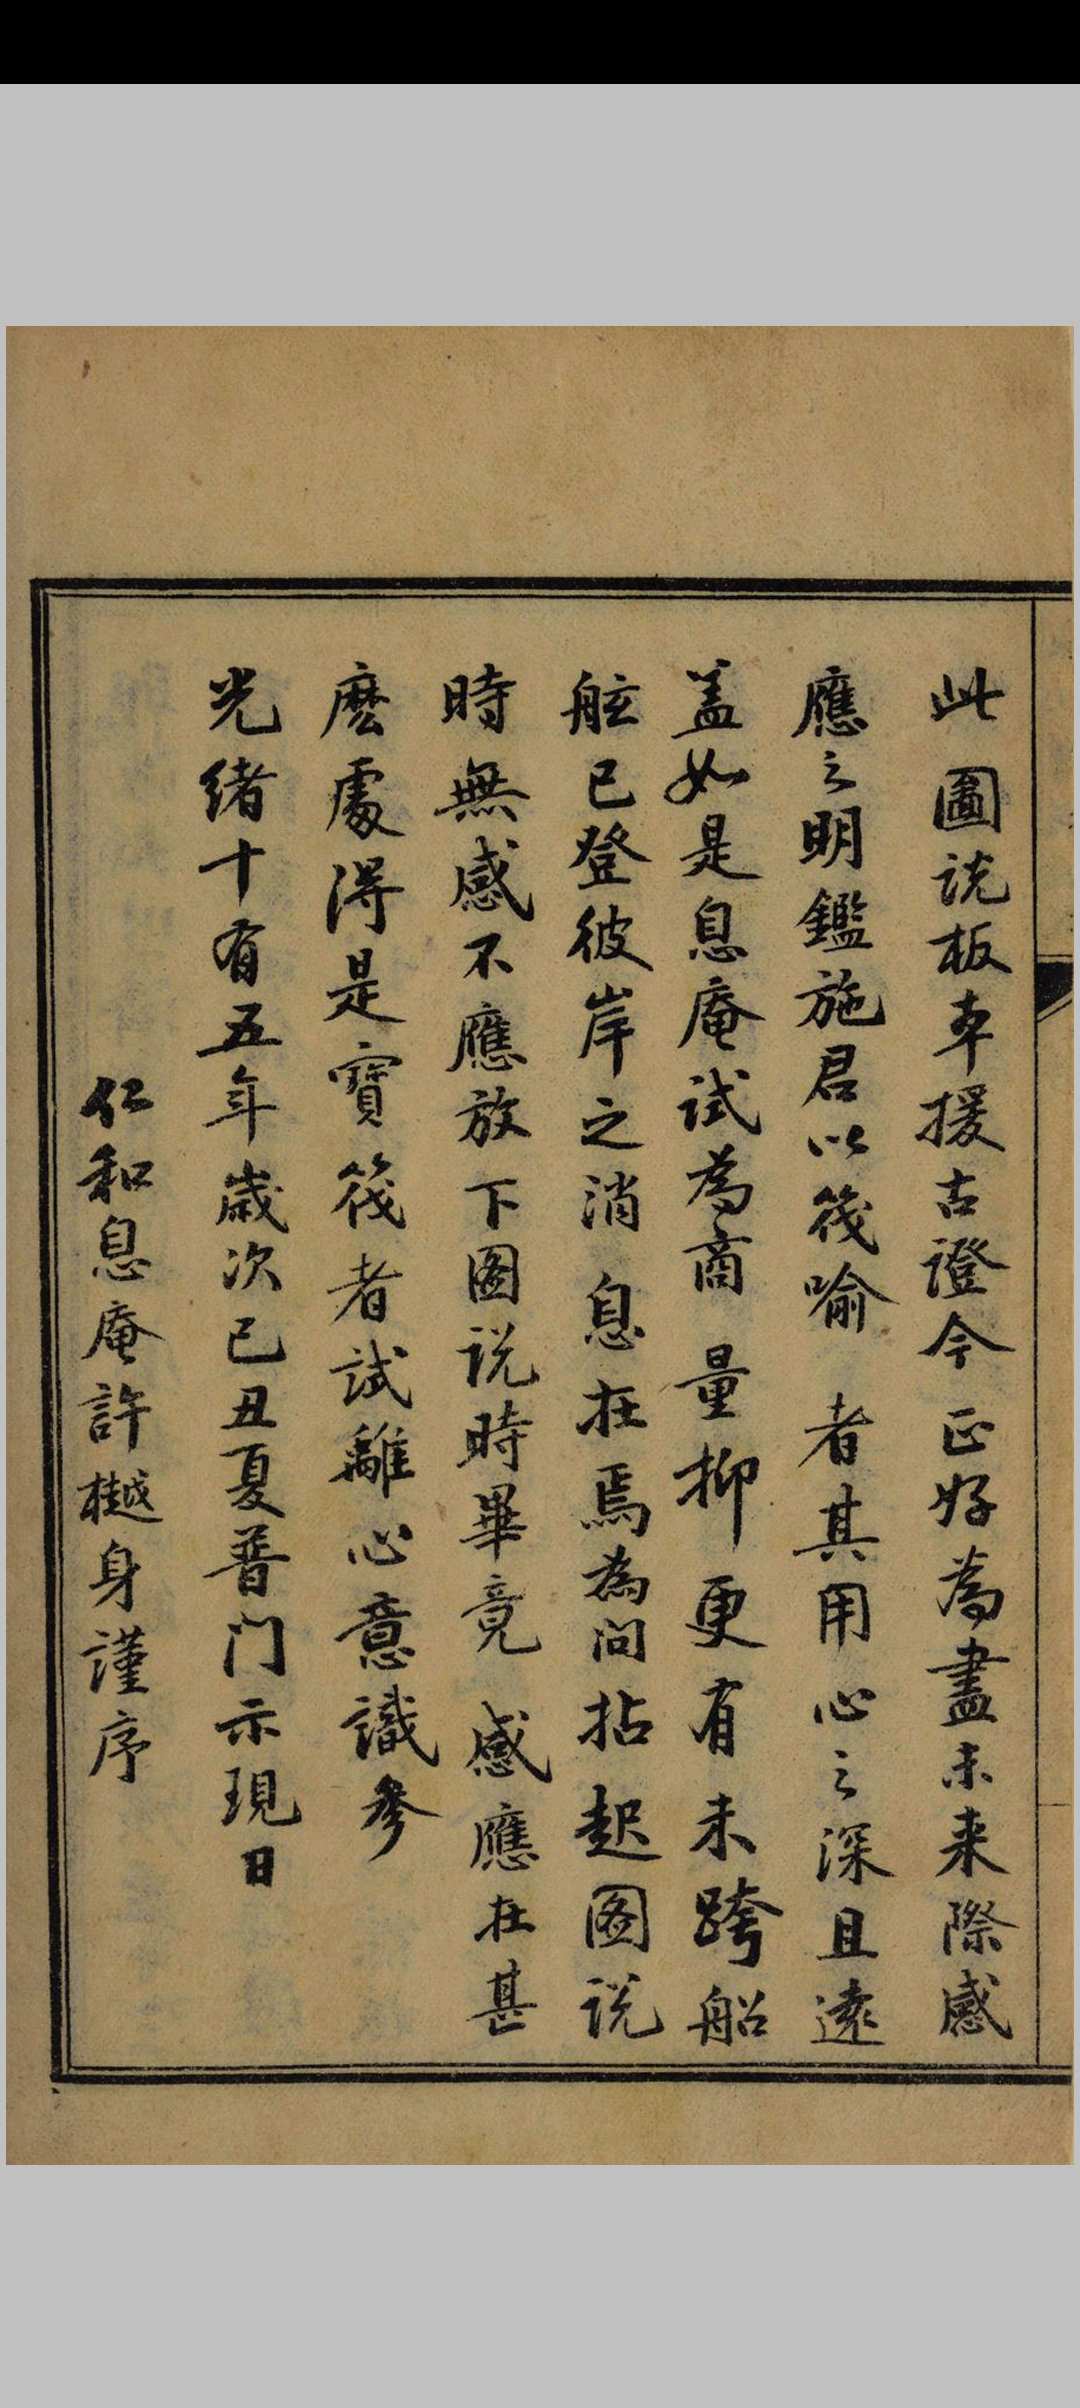 此圖説板本援古證今正好為盡未来際感
應之明鑑施君以筏喻者其用心之深且遠
盖如是息庵試為商量抑更有未跨船
舷已登彼岸之消息在焉為問拈起图説
時無感不應放下图説時畢竟感應在甚
麽處得是寶筏者試離心意識參
光绪十有五年歲次己丑夏普门示現日
仁和息庵許樾身謹序